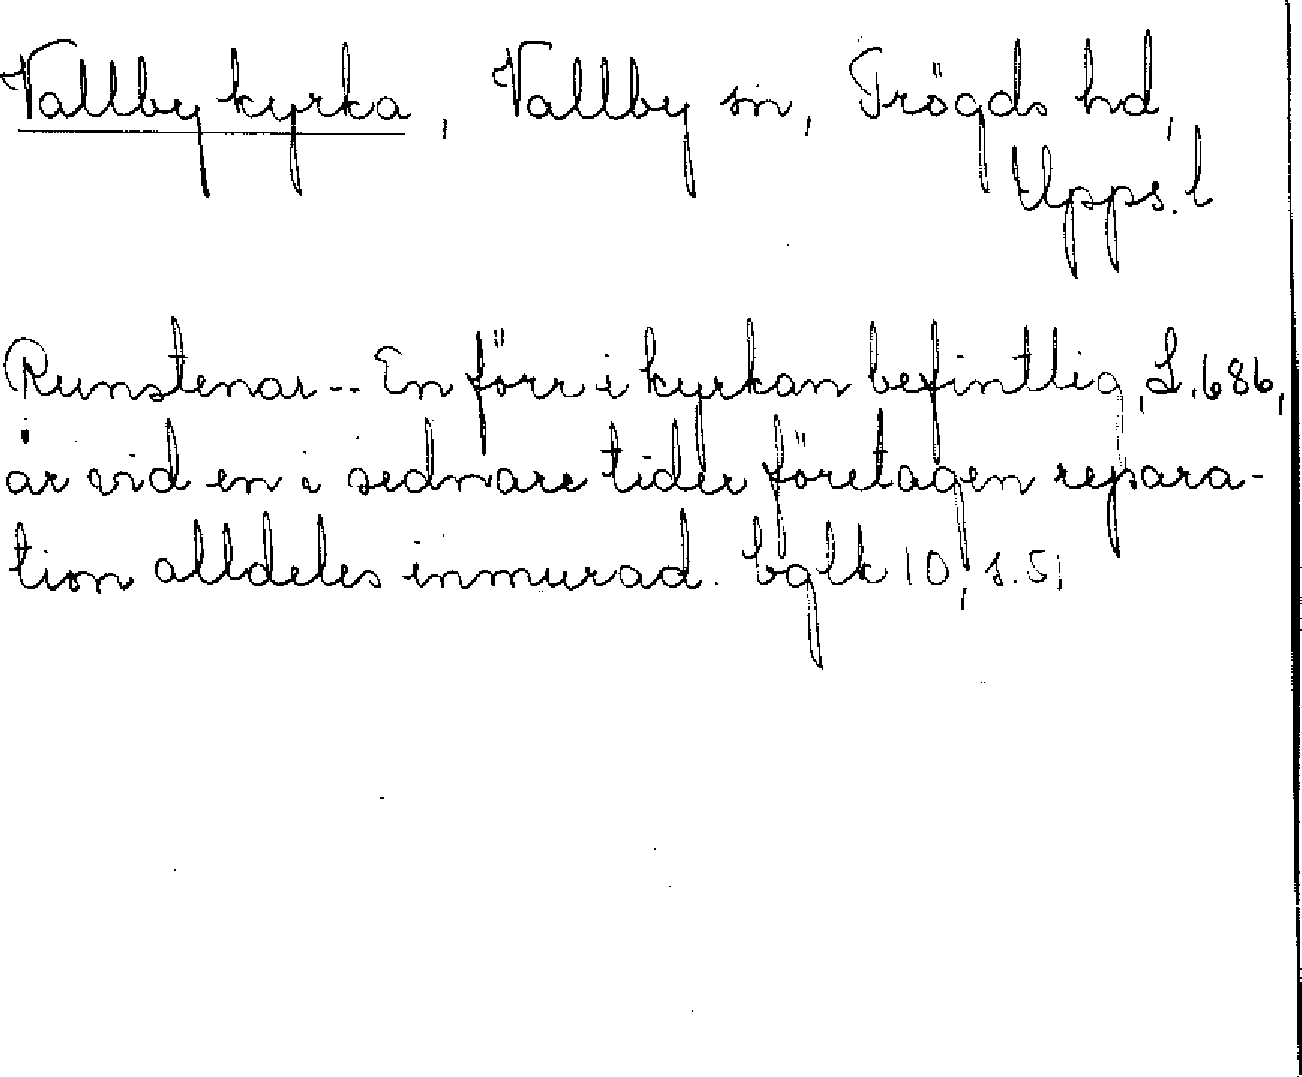 Vallby kyrka, Vallby sn, Trögds hd,
Upps. l
Runstenar -- En förr i kyrkan befintlig, L. 686,
är vid en i sednare tider företagen repara-
tion alldeles inmurad. bglk 10, s. 51